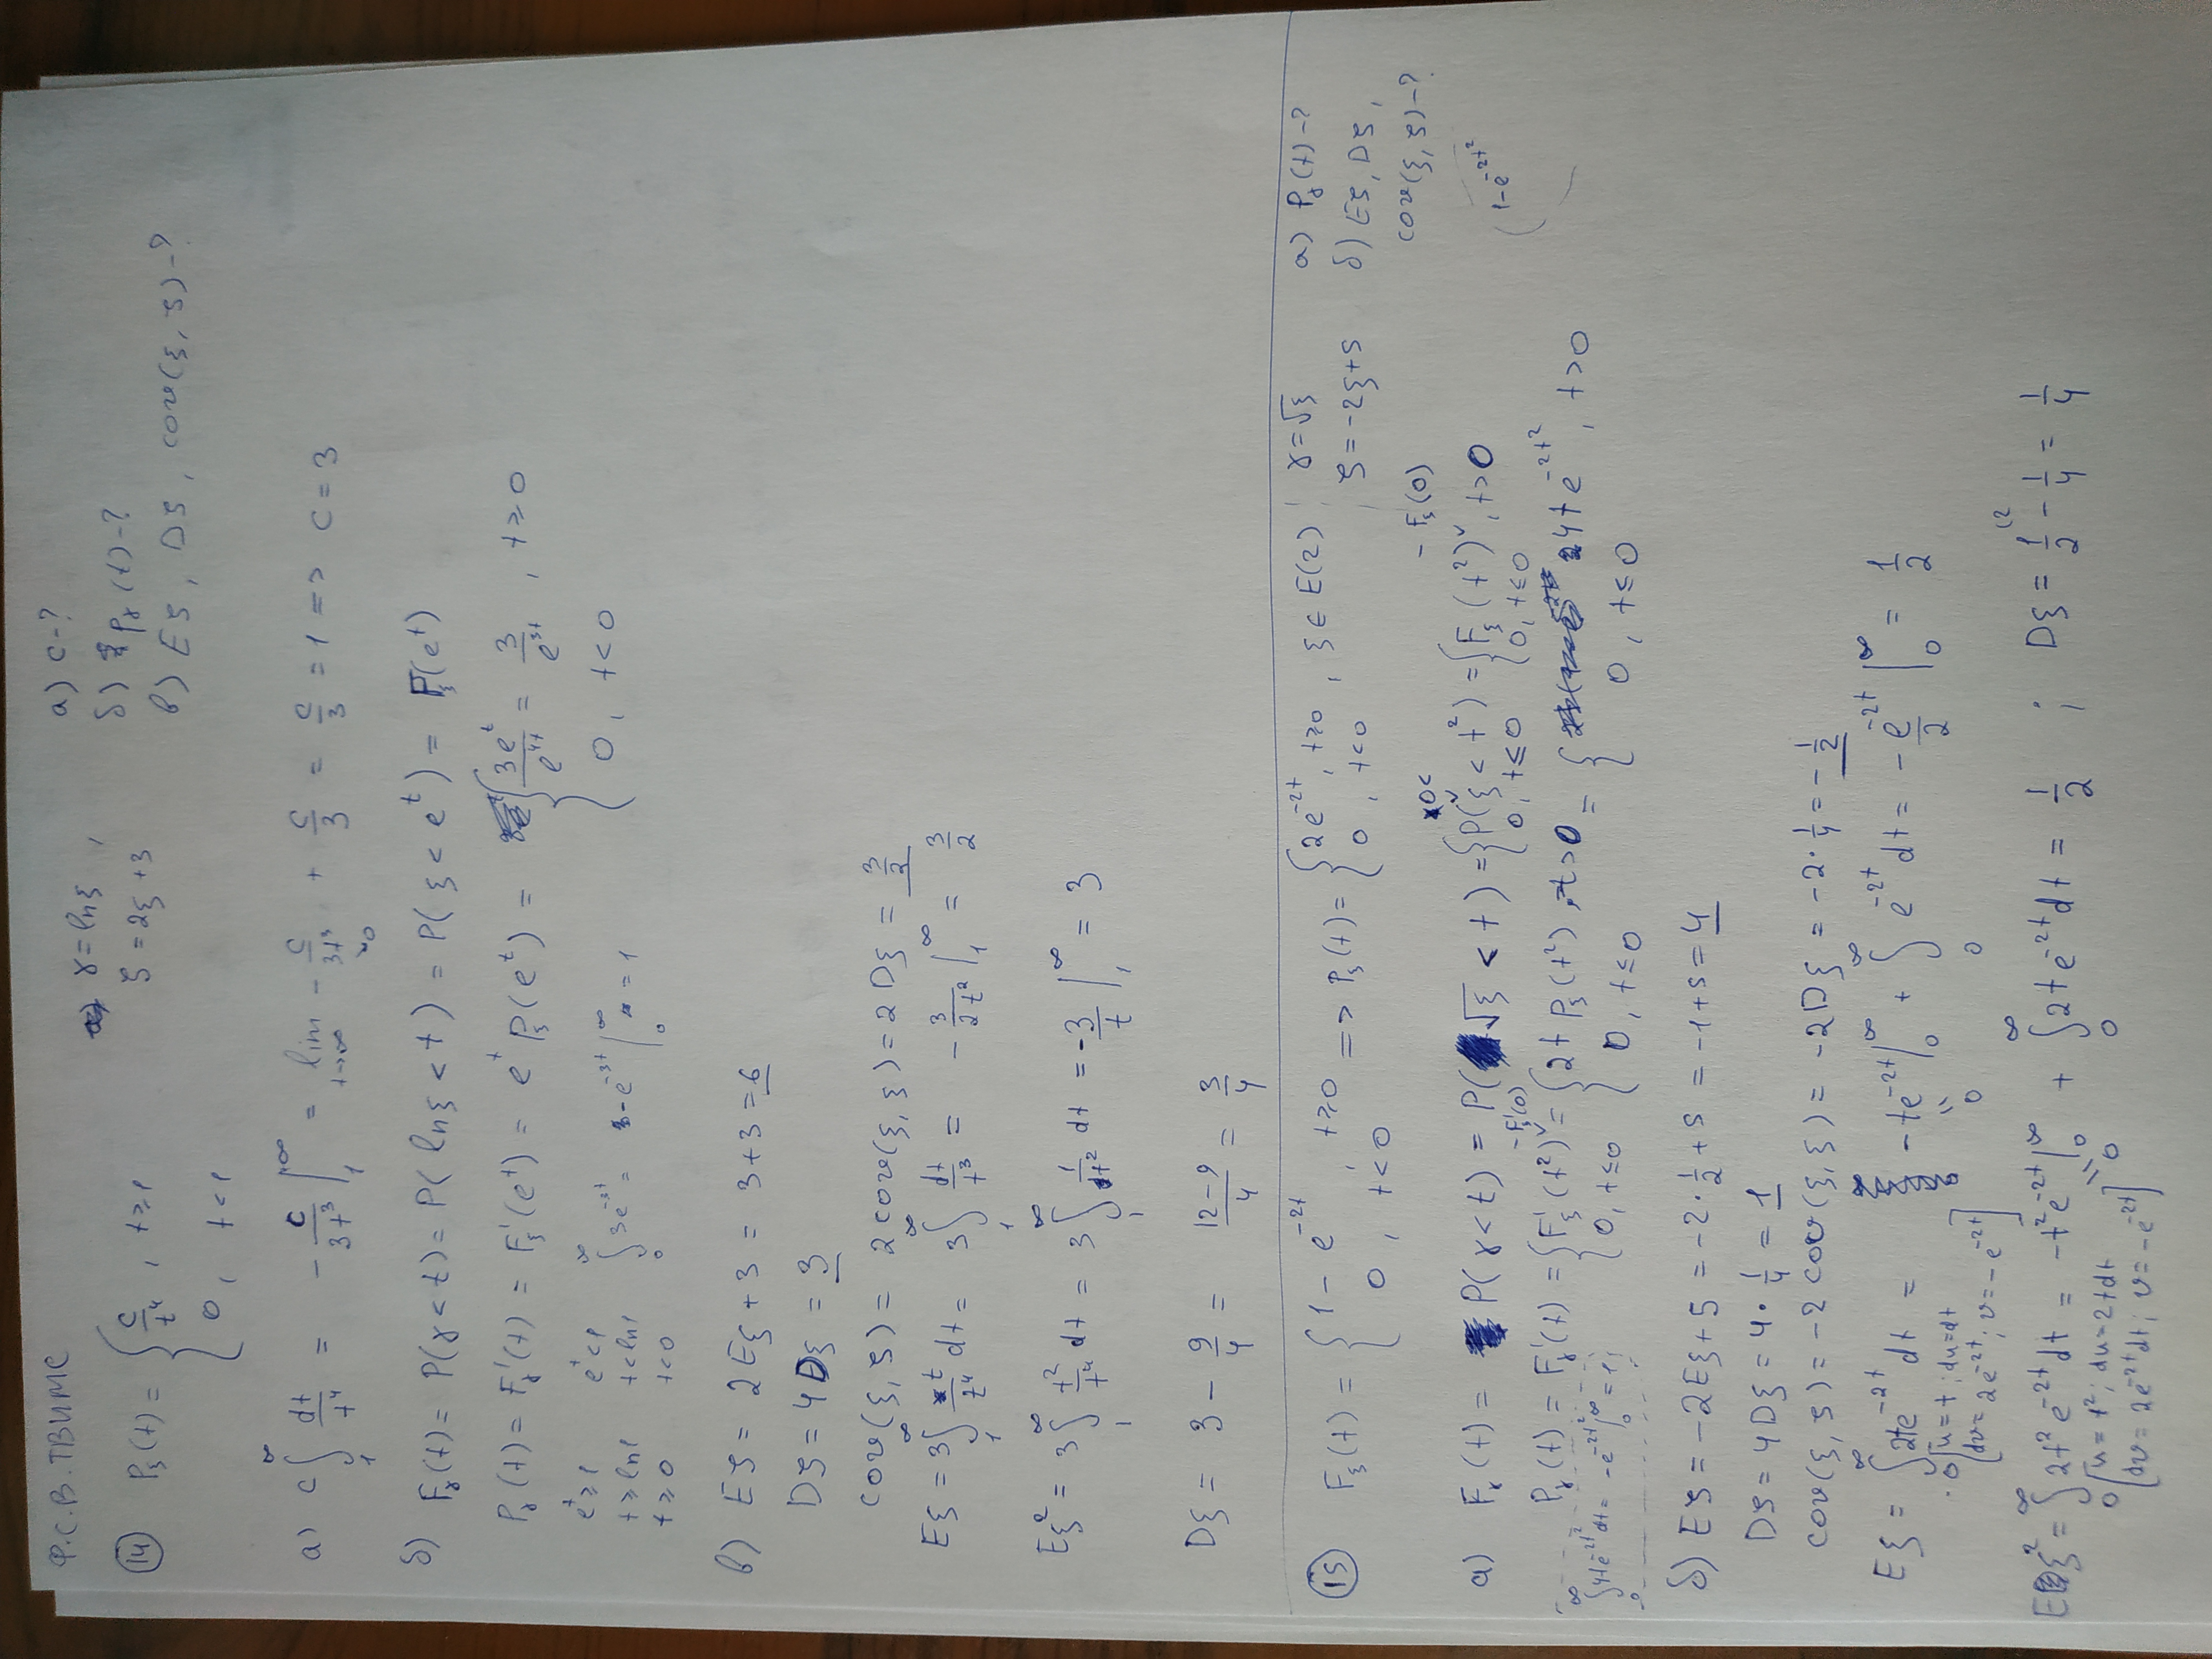 Ф.С.В. ТВИМС
14) P_ξ(t) = { c/t⁴, t ≥ 1
0, t < 1
γ = ln ξ,
ζ = 2ξ + 3
а) c - ?
б) P_γ(t) - ?
в) Eζ, Dζ, cov(ξ, ζ) - ?
а) c ∫₁^∞ dt/t⁴ = - c/3t³ |₁^{+∞} = lim_{t→∞} - c/3t³ + c/3 = c/3 = 1 => c = 3
→0
б) F_γ(t) = P(γ < t) = P(ln ξ < t) = P(ξ < e^t) = F_ξ(e^t)
P_γ(t) = F'_γ(t) = F'_ξ(e^t) = e^t P_ξ(e^t) = { 3e^t/e^{4t} = 3/e^{3t}, t ≥ 0
0, t < 0
e^t ≥ 1 e^t < 1
t ≥ ln 1 t < ln 1
t ≥ 0 t < 0
∫₀^∞ 3e^{-3t} = -e^{-3t} |₀^∞ = 1
в) Eζ = 2Eξ + 3 = 3 + 3 = 6
Dζ = 4Dξ = 3
cov(ξ, ζ) = 2 cov(ξ, ξ) = 2Dξ = 3/2
Eξ = 3 ∫₁^∞ t/t⁴ dt = 3 ∫₁^∞ dt/t³ = - 3/2t² |₁^∞ = 3/2
Eξ² = 3 ∫₁^∞ t²/t⁴ dt = 3 ∫₁^∞ 1/t² dt = -3/t |₁^∞ = 3
Dξ = 3 - 9/4 = (12-9)/4 = 3/4
15) F_ξ(t) = { 1 - e^{-2t}, t ≥ 0
0, t < 0
=> P_ξ(t) = { 2e^{-2t}, t ≥ 0
0, t < 0
, ξ ∈ E(2)
γ = √ξ
ζ = -2ξ + 5
а) P_γ(t) - ?
б) Eζ, Dζ,
cov(ξ, ζ) - ?
а) F_γ(t) = P(γ < t) = P(√ξ < t) = { P(0< ξ < t²) = { F_ξ(t²) - F_ξ(0), t > 0
0, t ≤ 0 0, t ≤ 0
1 - e^{-2t²}
P_γ(t) = F'_γ(t) = { F'_ξ(t²) - F'_ξ(0) = { 2t P_ξ(t²), t > 0 = { 4te^{-2t²}, t > 0
0, t ≤ 0 0, t ≤ 0 0, t ≤ 0
∫₀^∞ 4te^{-2t²} dt = -e^{-2t²} |₀^∞ = 1
б) Eζ = -2Eξ + 5 = -2 · 1/2 + 5 = -1 + 5 = 4
Dζ = 4Dξ = 4 · 1/4 = 1
cov(ξ, ζ) = -2 cov(ξ, ξ) = -2Dξ = -2 · 1/4 = -1/2
Eξ = ∫₀^∞ 2te^{-2t} dt = -te^{-2t} |₀^∞ + ∫₀^∞ e^{-2t} dt = - e^{-2t}/2 |₀^∞ = 1/2
[u = t; du = dt
dv = 2e^{-2t}; v = -e^{-2t}]
= 0
Eξ² = ∫₀^∞ 2t² e^{-2t} dt = -t² e^{-2t} |₀^∞ + ∫₀^∞ 2te^{-2t} dt = 1/2 ; Dξ = 1/2 - 1/4 = 1/4
[u = t²; du = 2tdt
dv = 2e^{-2t}dt; v = -e^{-2t}]
= 0